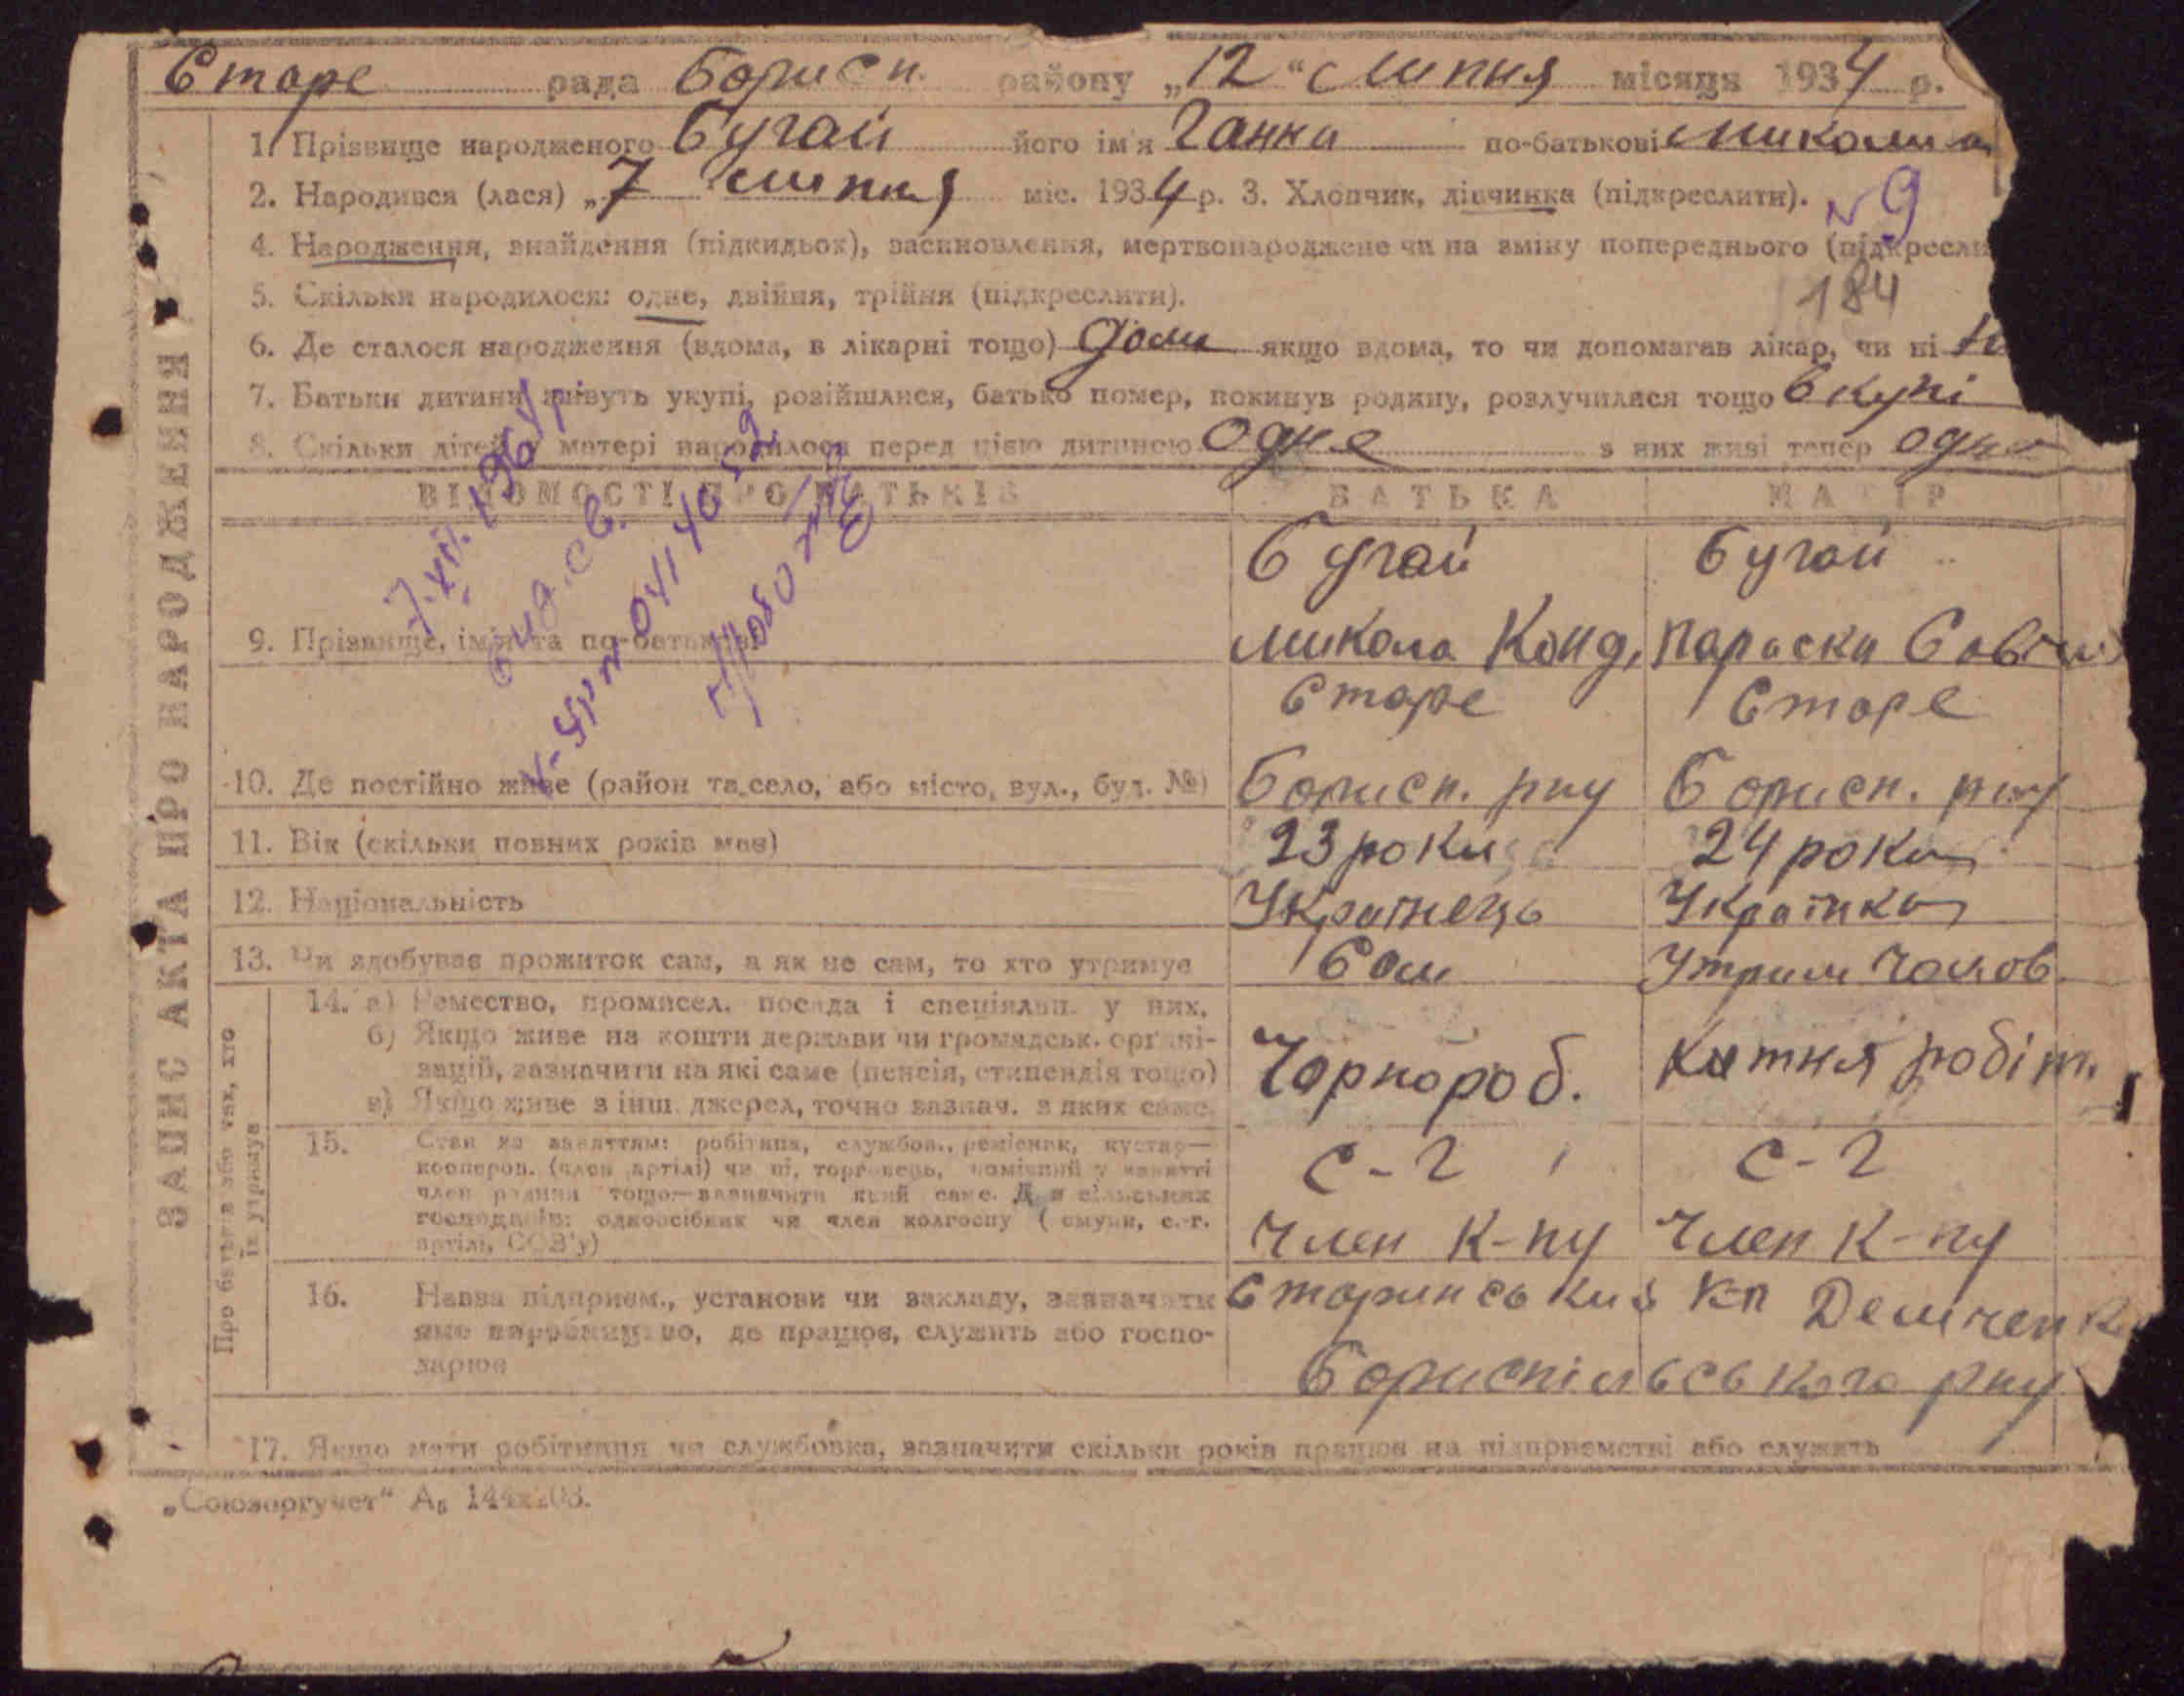 Старе рада Борисп. району „12“ Липня місяця 1934 р.
1. Прізвище народженого Бугай його ім'я Ганна по-батькові Микола
2. Народився (лася) „7 Липня міс. 1934 р. 3. Хлопчик, дівчинка (підкреслити).
№9
4. Народження, знайдення (підкидьок), засиновлення, мертвонароджене чи на зміну попереднього (підкресли
184
5. Скільки народилося: одне, двійня, трійня (підкреслити).
6. Де сталося народження (вдома, в лікарні тощо) Дома якщо вдома, то чи допомагав лікар, чи ні
7. Батьки дитини живуть укупі, розійшлися, батько помер, покинув родину, розлучилися тощо Вкупі
8. Скільки дітей матері народилося перед цією дитиною Одне з них живі тепер одне
ЗАПИС АКТА ПРО НАРОДЖЕННЯ
ВІДОМОСТІ ПРО БАТЬКІВ БАТЬКА МАТІР
7.XII. 1964 р.
вид. св.
Бугай Бугай
9. Прізвище, ім'я та по-батькові Микола Конд. Параска Савв
Старе Старе
10. Де постійно живе (район та село, або місто, вул., буд. №) Борисп. рну Борисп. рну
11. Вік (скільки повних років має) 23 роки 24 роки
12. Національність Українець Українка
13. Чи здобуває прожиток сам, а як не сам, то хто утримує Сам Утрим чолов.
Про батьків або тих, хто їх утримує
14. а) Ремество, промисел, посада і спеціяльн. у них,
б) Якщо живе на кошти держави чи громадськ. органі-
зацій, зазначити на які саме (пенсія, стипендія тощо)
в) Якщо живе з інш. джерел, точно зазнач. з яких саме.
Чорнороб. Хатня робіт.
15. Стан за заняттям: робітник, службов., ремісник, кустар—
кооперов. (член артілі) чи ні, торговець, помічний у занятті
член родини тощо—зазначити який саме. Для сільських
господарів: одноосібник чи член колгоспу (комуни, с.-г.
артіль, СОЗ'у)
С-Г С-Г
Член К-пу Член К-пу
16. Назва підприєм., установи чи закладу, зазначити
яке виробництво, де працює, служить або госпо-
дарює
Старинський КП Демченк
Бориспільського рну
17. Якщо мати робітниця чи службовка, зазначити скільки років працює на підприємстві або служить
„Союзоргучет“ А₅ 144х203.